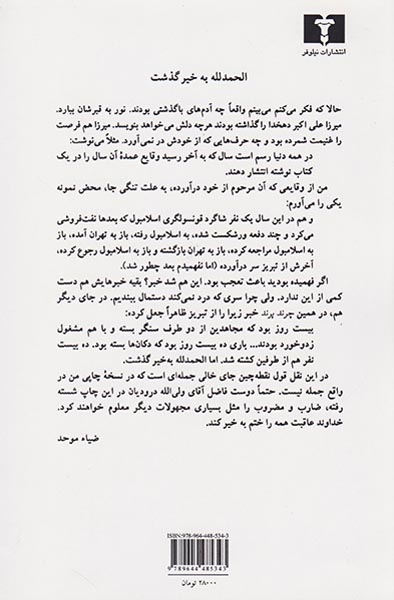 انتشارات نیلوفر
الحمدلله به خیر گذشت
حالا که فکر می‌کنم می‌بینم واقعاً چه آدم‌های باگذشتی بودند. نور به قبرشان ببارد.
میرزا علی اکبر دهخدا را گذاشته بودند هرچه دلش می‌خواهد بنویسد. میرزا هم فرصت
را غنیمت شمرده بود و چه حرف‌هایی که از خودش در نمی‌آورد. مثلاً می‌نوشت:
در همه دنیا رسم است سال که به آخر رسید وقایع عمدهٔ آن سال را در یک
کتاب نوشته انتشار دهند.
من از وقایعی که آن مرحوم از خود درآورده، به علت تنگی جا، محض نمونه
یکی را می‌آورم:
و هم در این سال یک نفر شاگرد قونسولگری اسلامبول که بعدها نفت‌فروشی
می‌کرد و چند دفعه ورشکست شده، به اسلامبول رفته، باز به تهران آمده، باز
به اسلامبول مراجعه کرده، باز به تهران بازگشته و باز به اسلامبول رجوع کرده،
آخرش از تبریز سر درآورده (اما نفهمیدم بعد چطور شد).
اگر فهمیده بودید باعث تعجب بود. این هم شد خبر؟ بقیه خبرهایش هم دست
کمی از این ندارد. ولی چرا سری که درد نمی‌کند دستمال ببندیم. در جای دیگر
هم، در همین چرند پرند خبر زیرا را از تبریز ظاهراً جعل کرده:
بیست روز بود که مجاهدین از دو طرف سنگر بسته و با هم مشغول
زدوخورد بودند... باری ده بیست روز بود که دکان‌ها بسته بود. ده بیست
نفر هم از طرفین کشته شد. اما الحمدلله به‌خیر گذشت.
در این نقل قول نقطه‌چین جای خالی جمله‌ای است که در نسخهٔ چاپی من در
واقع جمله نیست. حتماً دوست فاضل آقای ولی‌الله درودیان در این چاپ شسته
رفته، ضارب و مضروب را مثل بسیاری مجهولات دیگر معلوم خواهند کرد.
خداوند عاقبت همه را ختم به خیر کند.
ضیاء موحد
ISBN:978-964-448-534-3
9 789644 485343
۲۸۰۰۰ تومان